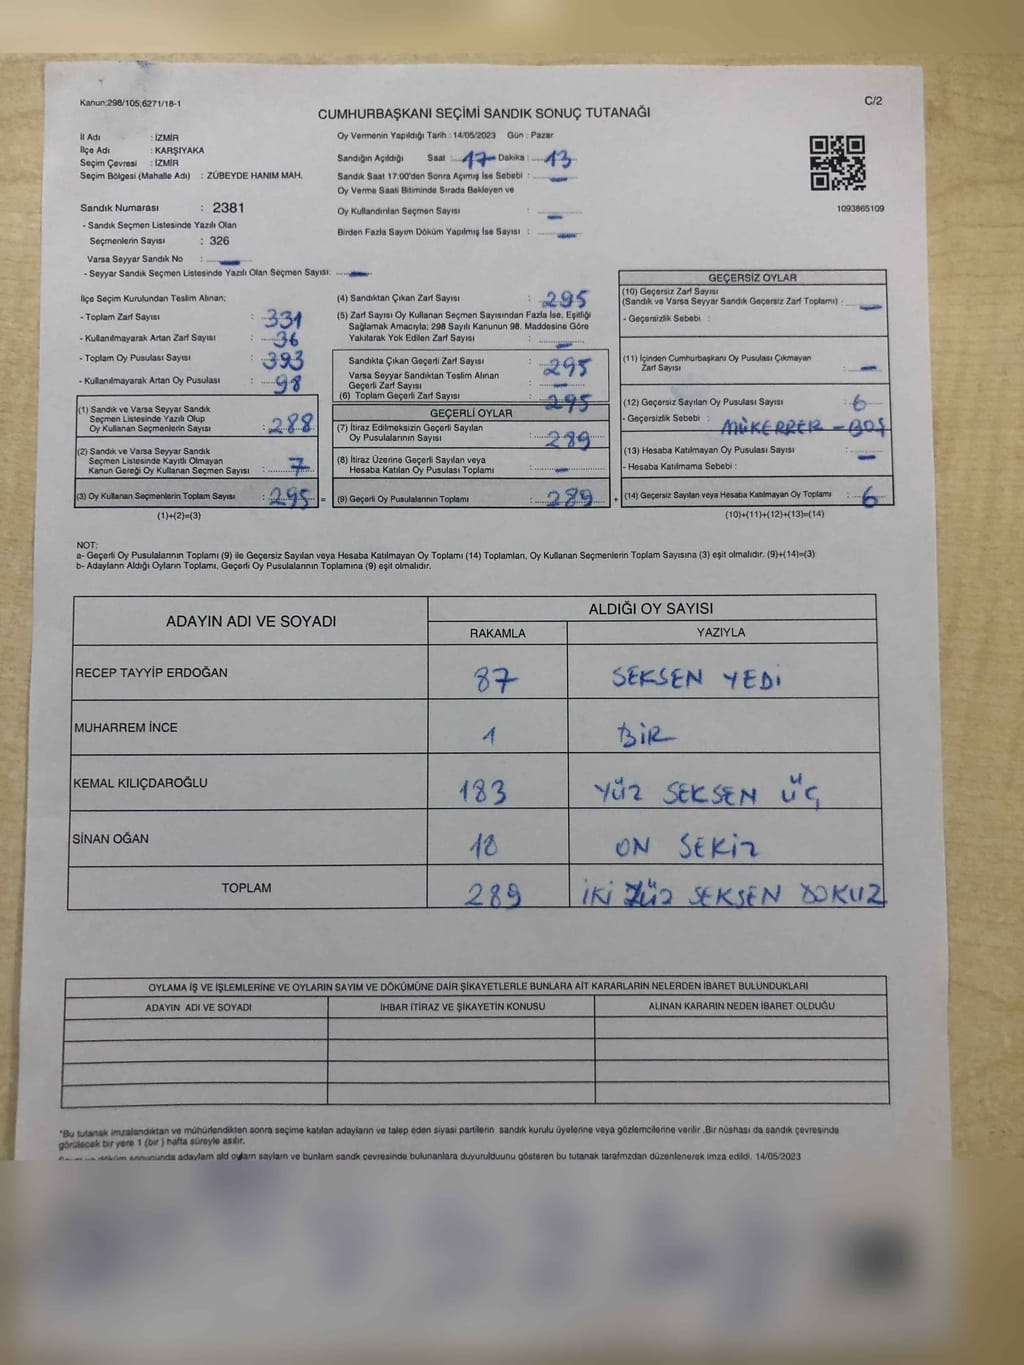 Kanun:298/105;6271/18-1
C/2
CUMHURBAŞKANI SEÇİMİ SANDIK SONUÇ TUTANAĞI
İl Adı : İZMİR
İlçe Adı : KARŞIYAKA
Seçim Çevresi : İZMİR
Seçim Bölgesi (Mahalle Adı) : ZÜBEYDE HANIM MAH.
Sandık Numarası : 2381
- Sandık Seçmen Listesinde Yazılı Olan
Seçmenlerin Sayısı : 326
Varsa Seyyar Sandık No :
- Seyyar Sandık Seçmen Listesinde Yazılı Olan Seçmen Sayısı:
Oy Vermenin Yapıldığı Tarih : 14/05/2023 Gün : Pazar
Sandığın Açıldığı Saat : 17 Dakika : 13
Sandık Saat 17:00'den Sonra Açımış İse Sebebi :
Oy Verme Saati Bitiminde Sırada Bekleyen ve
Oy Kullandırılan Seçmen Sayısı :
Birden Fazla Sayım Döküm Yapılmış İse Sayısı :
1093865109
İlçe Seçim Kurulundan Teslim Alınan;
- Toplam Zarf Sayısı : 331
- Kullanılmayarak Artan Zarf Sayısı : 36
- Toplam Oy Pusulası Sayısı : 393
- Kullanılmayarak Artan Oy Pusulası : 98
(1) Sandık ve Varsa Seyyar Sandık
Seçmen Listesinde Yazılı Olup
Oy Kullanan Seçmenlerin Sayısı : 288
(2) Sandık ve Varsa Seyyar Sandık
Seçmen Listesinde Kayıtlı Olmayan
Kanun Gereği Oy Kullanan Seçmen Sayısı : 7
(3) Oy Kullanan Seçmenlerin Toplam Sayısı : 295 =
(1)+(2)=(3)
(4) Sandıktan Çıkan Zarf Sayısı : 295
(5) Zarf Sayısı Oy Kullanan Seçmen Sayısından Fazla İse, Eşitliği
Sağlamak Amacıyla; 298 Sayılı Kanunun 98. Maddesine Göre
Yakılarak Yok Edilen Zarf Sayısı :
Sandıkta Çıkan Geçerli Zarf Sayısı : 295
Varsa Seyyar Sandıktan Teslim Alınan
Geçerli Zarf Sayısı :
(6) Toplam Geçerli Zarf Sayısı : 295
GEÇERLİ OYLAR
(7) İtiraz Edilmeksizin Geçerli Sayılan
Oy Pusulalarının Sayısı : 289
(8) İtiraz Üzerine Geçerli Sayılan veya
Hesaba Katılan Oy Pusulası Toplamı :
(9) Geçerli Oy Pusulalarının Toplamı : 289 +
GEÇERSİZ OYLAR
(10) Geçersiz Zarf Sayısı
(Sandık ve Varsa Seyyar Sandık Geçersiz Zarf Toplamı) :
- Geçersizlik Sebebi :
(11) İçinden Cumhurbaşkanı Oy Pusulası Çıkmayan
Zarf Sayısı :
(12) Geçersiz Sayılan Oy Pusulası Sayısı : 6
- Geçersizlik Sebebi : MÜKERRER - BOŞ
(13) Hesaba Katılmayan Oy Pusulası Sayısı :
- Hesaba Katılmama Sebebi :
(14) Geçersiz Sayılan veya Hesaba Katılmayan Oy Toplamı : 6
(10)+(11)+(12)+(13)=(14)
NOT:
a- Geçerli Oy Pusulalarının Toplamı (9) ile Geçersiz Sayılan veya Hesaba Katılmayan Oy Toplamı (14) Toplamları, Oy Kullanan Seçmenlerin Toplam Sayısına (3) eşit olmalıdır. (9)+(14)=(3)
b- Adayların Aldığı Oyların Toplamı, Geçerli Oy Pusulalarının Toplamına (9) eşit olmalıdır.
ADAYIN ADI VE SOYADI ALDIĞI OY SAYISI
RAKAMLA YAZIYLA
RECEP TAYYİP ERDOĞAN 87 SEKSEN YEDİ
MUHARREM İNCE 1 BİR
KEMAL KILIÇDAROĞLU 183 YÜZ SEKSEN ÜÇ
SİNAN OĞAN 18 ON SEKİZ
TOPLAM 289 İKİ YÜZ SEKSEN DOKUZ
OYLAMA İŞ VE İŞLEMLERİNE VE OYLARIN SAYIM VE DÖKÜMÜNE DAİR ŞİKAYETLERLE BUNLARA AİT KARARLARIN NELERDEN İBARET BULUNDUKLARI
ADAYIN ADI VE SOYADI İHBAR İTİRAZ VE ŞİKAYETİN KONUSU ALINAN KARARIN NEDEN İBARET OLDUĞU
*Bu tutanak imzalandıktan ve mühürlendikten sonra seçime katılan adayların ve talep eden siyasi partilerin sandık kurulu üyelerine veya gözlemcilerine verilir .Bir nüshası da sandık çevresinde
görülecek bir yere 1 (bir ) hafta süreyle asılır.
gösteren bu tutanak tarafımzdan düzenlenerek imza edildi. 14/05/2023